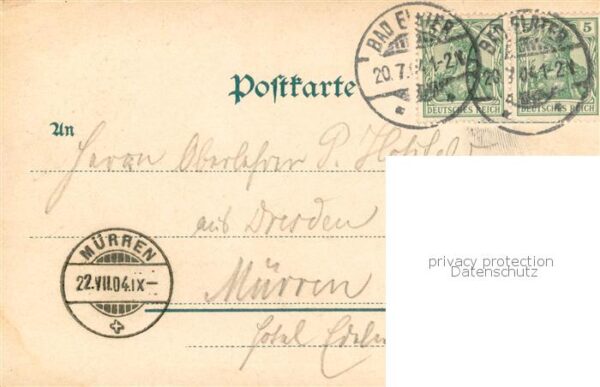 BAD ELSTER BAD ELSTER
20.7.04.1-2N. 20.7.04.1-2N.
5
DEUTSCHES REICH DEUTSCHES REICH
Postkarte
An
Herrn Oberlehrer P.
aus Dresden
MÜRREN
22.VII.04.IX–
Mürren
Hotel
privacy protection
Datenschutz